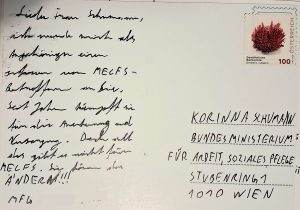 Liebe Frau Schumann,
ich wende mich als
Angehörigen einer
von MECFS-
Betroffenen an Sie.
Seit Jahren kämpft sie
für die Anerkennung und
Versorgung. Doch
gibt es nicht für
MECFS. Sie können das
ÄNDERN!!!
MFG
ÖSTERREICH
100
KORINNA SCHUMANN
BUNDESMINISTERIUM
FÜR ARBEIT, SOZIALES PFLEGE
STUBENRING 1
1010 WIEN